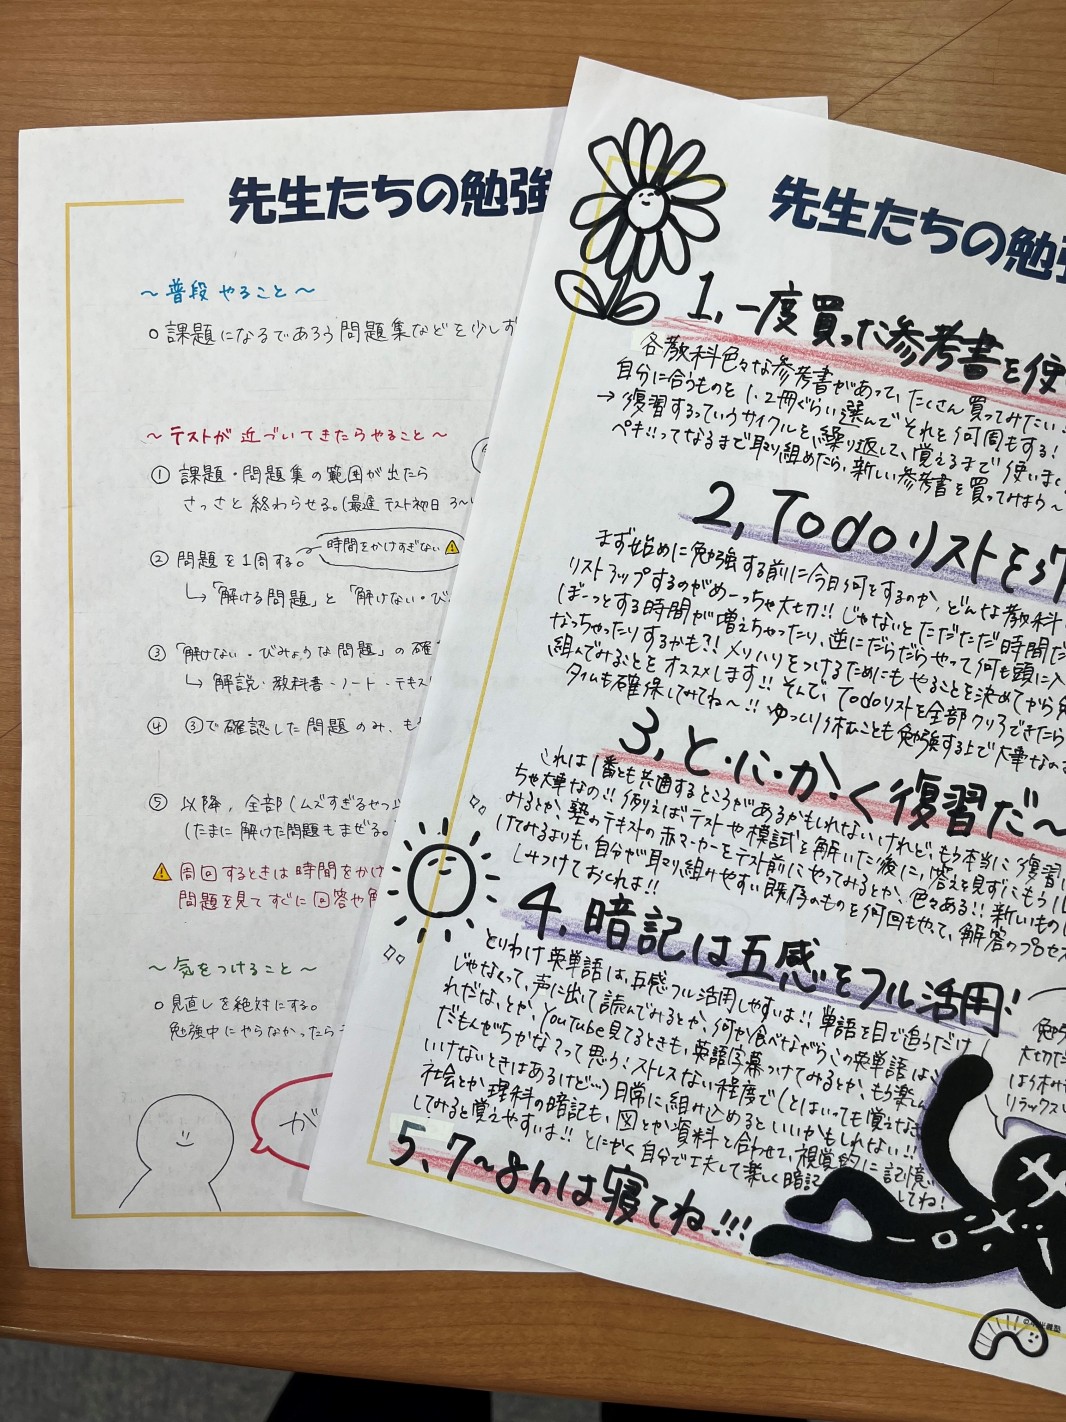 先生たちの勉強
～普段やること～
○課題になるであろう問題集などを少しず
～テストが近づいてきたらやること～
① 課題・問題集の範囲が出たら
さっさと終わらせる。(最遅 テスト初日 3～
② 問題を1周する。 時間をかけすぎない⚠
↳「解ける問題」と「解けない・び
③ 「解けない・びみょうな問題」の確
↳ 解説・教科書・ノート・テキス
④ ③で確認した問題のみ、も
⑤ 以降、全部(ムズすぎるやつ以
(たまに解けた問題もまぜる。
⚠ 周回するときは時間をかけ
問題を見てすぐに回答や解
～気をつけること～
○ 見直しを絶対にする。
勉強中にやらなかったら
が
先生たちの勉強
1. 一度買った参考書を使
各教科色々な参考書があって、たくさん買ってみたい
自分に合うものを1、2冊ぐらい選んでそれを何周もする!
→ 復習するっていうサイクルを繰り返して、覚えるまで使いまく
ペキ!!ってなるまで取り組めたら、新しい参考書を買ってみよう～
2. Todoリストを
まず始めに勉強する前に今日何をするのか、どんな教科
リストアップするのがめーっちゃ大切!! じゃないとただただ時間だ
ぼーっとする時間が増えちゃったり、逆にだらだらやって何も頭に入
なっちゃったりするかも?! メリハリをつけるためにもやることを決めてから
組んでみることをオススメします!! そんで、Todoリストを全部クリアできたら
タイムも確保してみてね～!! ゆっくり休むことも勉強する上で大事なの
3. と・に・か・く復習だ～
これは1番とも共通するところがあるかもしれないけれど、もう本当に復習
ちゃ大事なの!! 例えば、テストや模試を解いた後に、答えを見ずにもう1
みるとか、塾のテキストの赤マーカーをテスト前にやってみるとか、色々ある!! 新しいものに
けてみるよりも、自分が取り組みやすい既存のものを何回もやって、解答のプロセス
しみつけておくれよ!!
4. 暗記は五感をフル活用!
とりわけ英単語は、五感フル活用しやすいよ!! 単語を目で追うだけ
じゃなくって、声に出して読んでみるとか、何か食べながらこの英単語は、
れだな、とか、YouTube見てるときも、英語字幕つけてみるとか、もう楽ん
だもんがちかな?って思う! ストレスない程度で(とはいっても覚えなき
いけないときはあるけど…)日常に組み込めるといいかもしれない!!
社会とか理科の暗記も、図とか資料と合わせて、視覚的に記憶
してみると覚えやすいよ!! とにかく自分で工夫して楽しく暗記
してね!
勉強
大切だ
は休み
リラックス
5. 7～8hは寝てね!!!